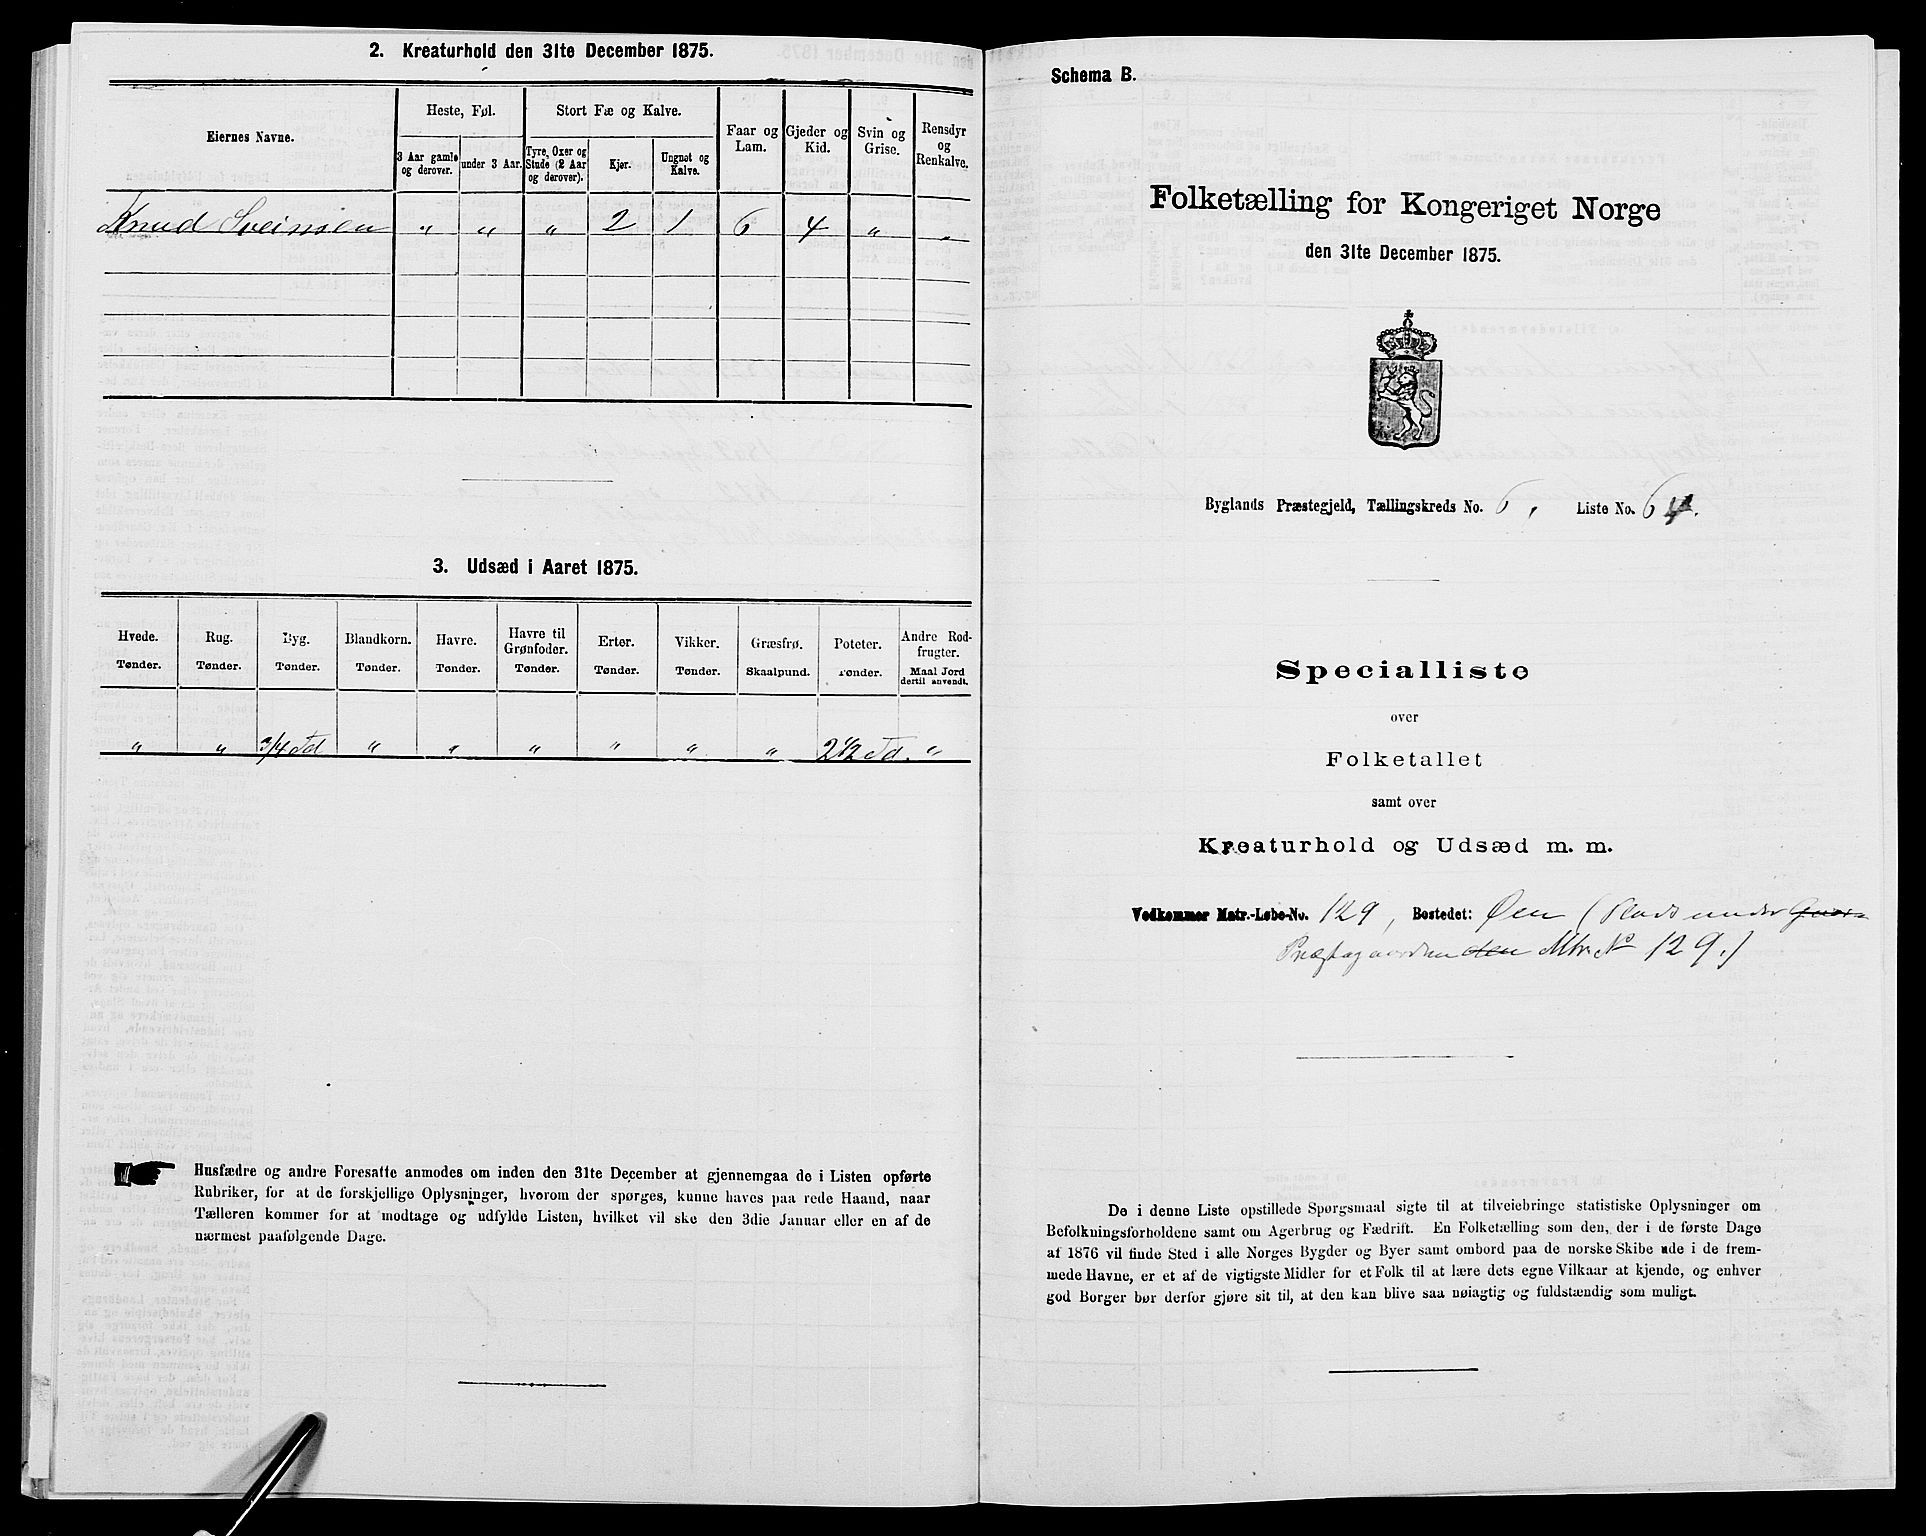 2. Kreaturhold den 31te December 1875.
Eiernes Navne.
Heste, Føl.
Stort Fæ og Kalve.
Faar og Lam.
Gjeder og Kid.
Svin og Grise.
Rensdyr og Renkalve.
3 Aar gamle og derover.
under 3 Aar.
Tyre, Oxer og Stude (2 Aar og derover).
Kjør.
Ungnøt og Kalve.
Knud Sveinsen " " " 2 1 6 4 " "
3. Udsæd i Aaret 1875.
Hvede. Rug. Byg. Blandkorn. Havre. Havre til Grønfoder. Erter. Vikker. Græsfrø. Poteter. Andre Rodfrugter.
Tønder. Tønder. Tønder. Tønder. Tønder. Tønder. Tønder. Tønder. Skaalpund. Tønder. Maal Jord dertil anvendt.
" " 3/4 Td " " " " " " 2 1/2 Td. "
Husfædre og andre Foresatte anmodes om inden den 31te December at gjennemgaa de i Listen opførte
Rubriker, for at de forskjellige Oplysninger, hvorom der spørges, kunne haves paa rede Haand, naar
Tælleren kommer for at modtage og udfylde Listen, hvilket vil ske den 3die Januar eller en af de
nærmest paafølgende Dage.
Schema B.
Folketælling for Kongeriget Norge
den 31te December 1875.
Byglands Præstegjeld, Tællingskreds No. 6, Liste No. 64.
Specialliste
over
Folketallet
samt over
Kreaturhold og Udsæd m. m.
Vedkommer Matr.-Løbe-No. 129, Bostedet: Øen (Plads under
Præstegaarden den Mtr. № 129.)
De i denne Liste opstillede Spørgsmaal sigte til at tilveiebringe statistiske Oplysninger om
Befolkningsforholdene samt om Agerbrug og Fædrift. En Folketælling som den, der i de første Dage
af 1876 vil finde Sted i alle Norges Bygder og Byer samt ombord paa de norske Skibe ude i de frem-
mede Havne, er et af de vigtigste Midler for et Folk til at lære dets egne Vilkaar at kjende, og enhver
god Borger bør derfor gjøre sit til, at den kan blive saa nøiagtig og fuldstændig som muligt.